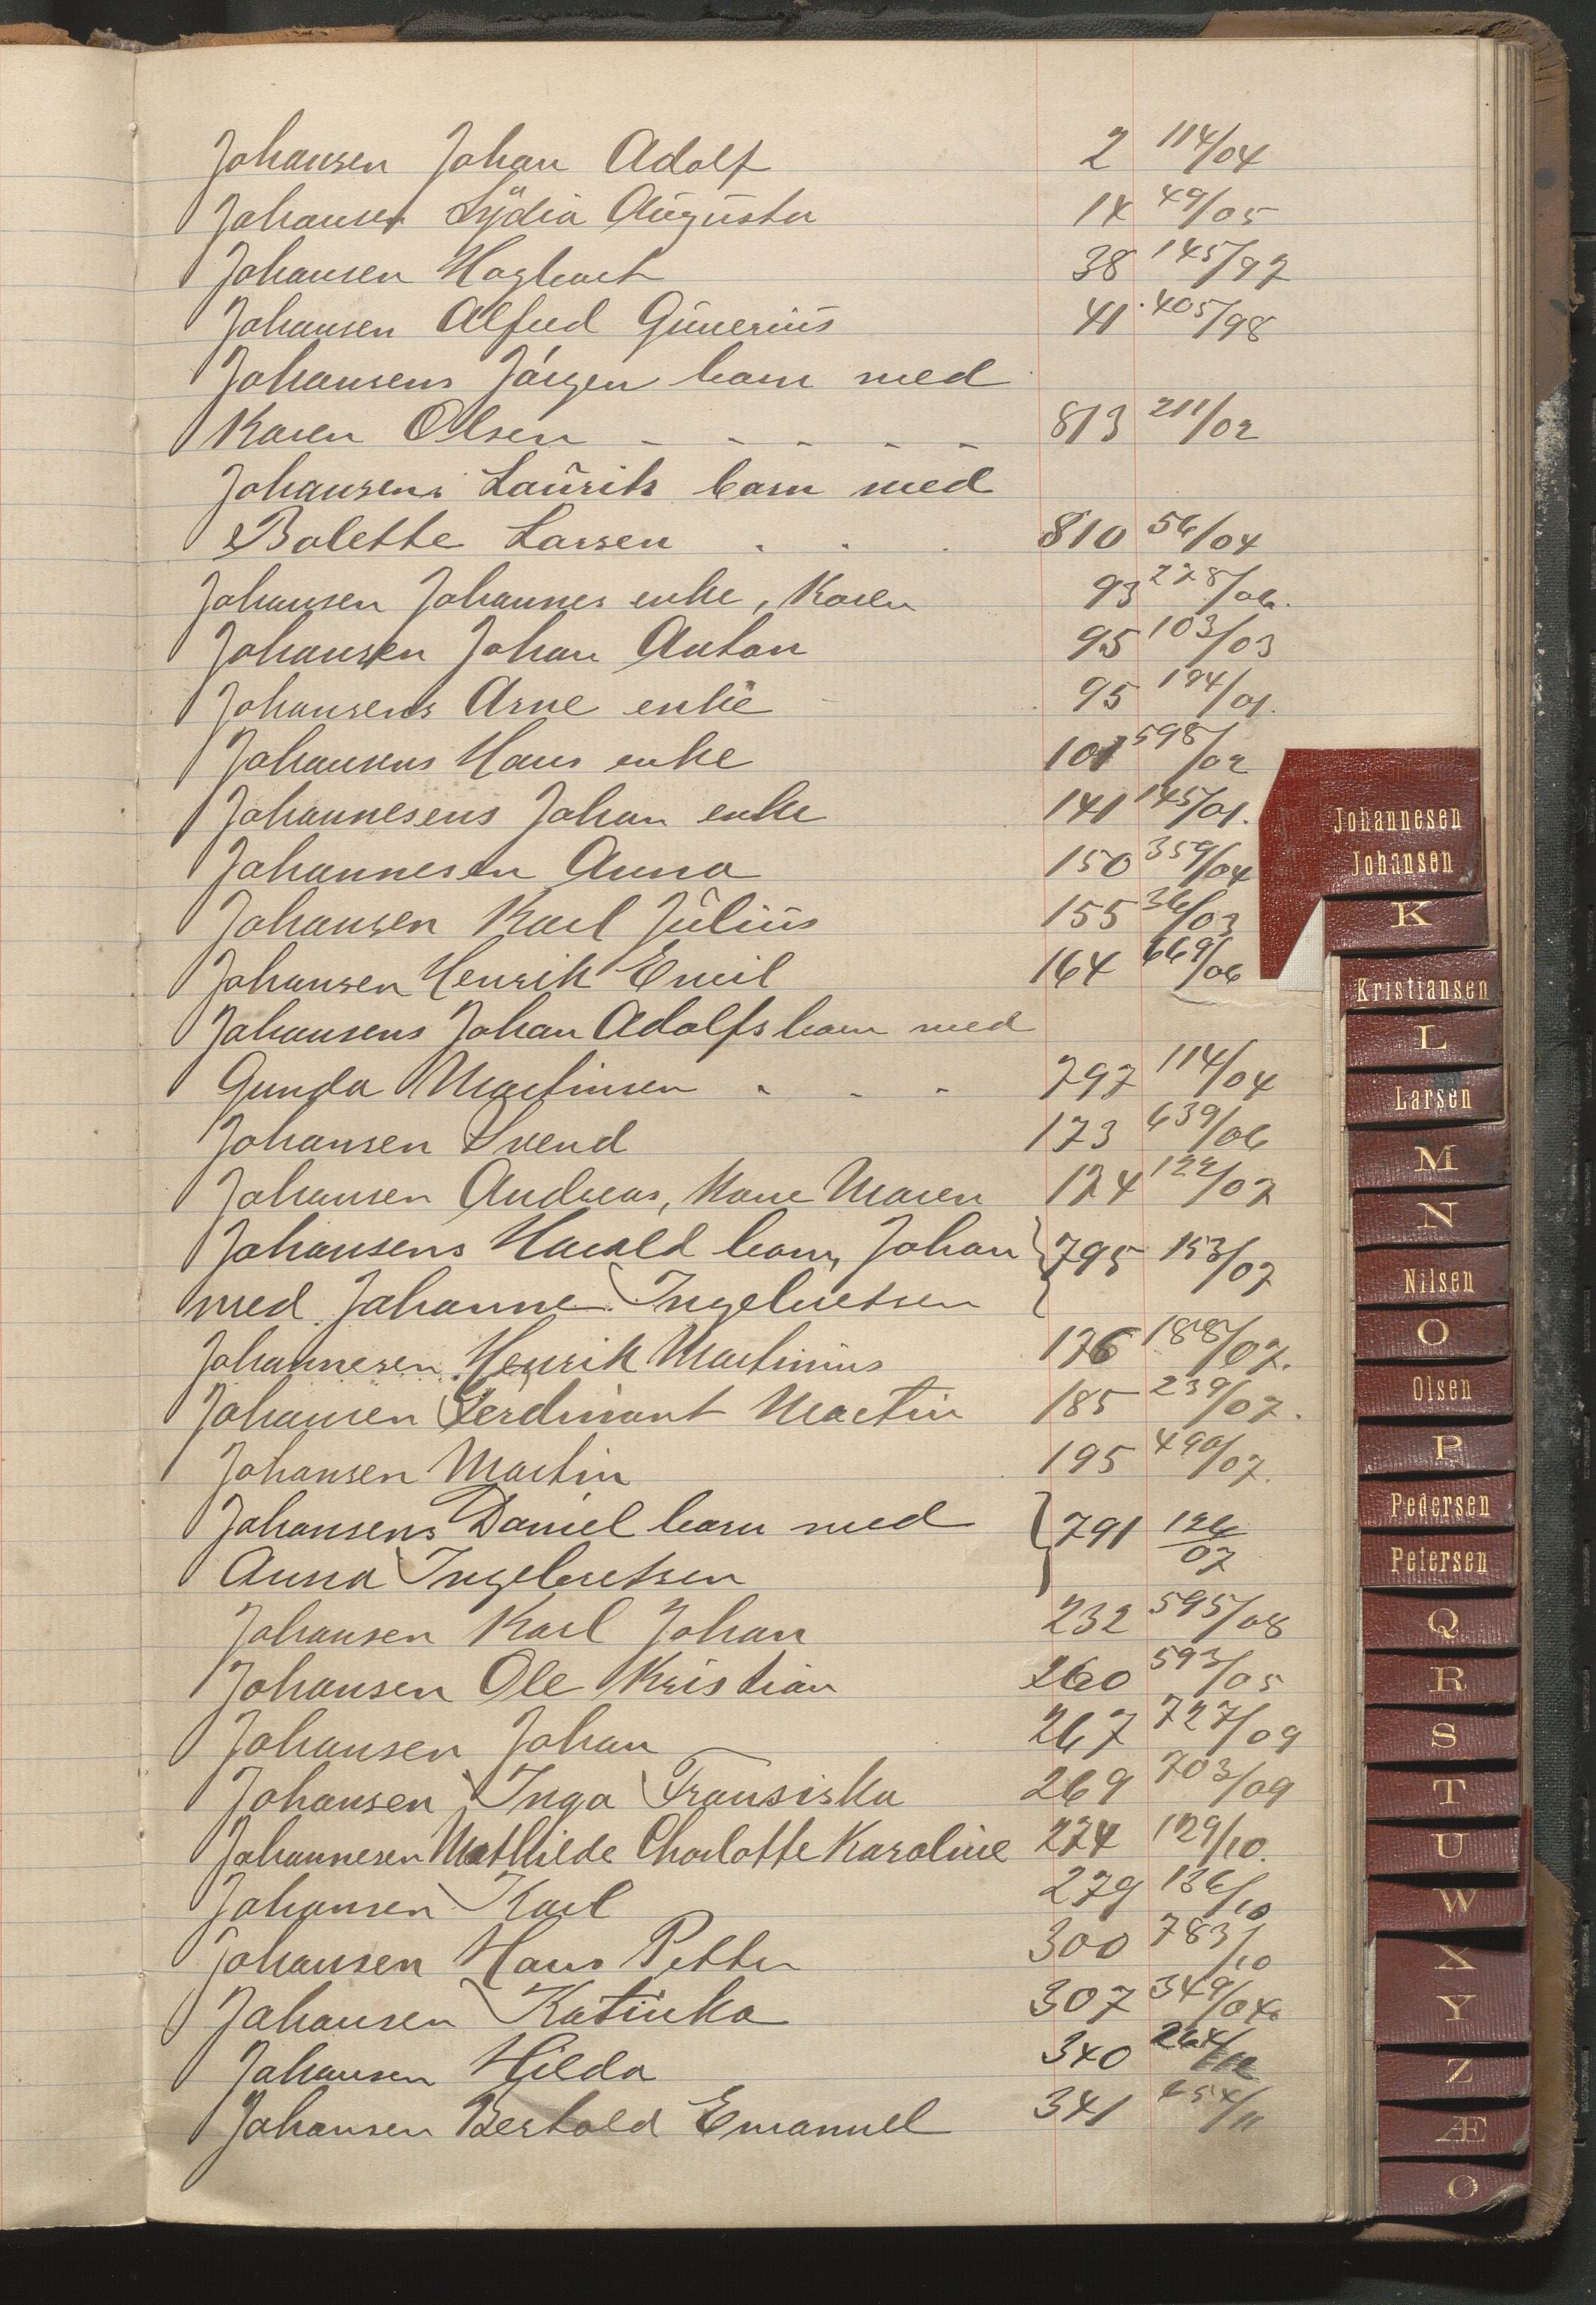 Johansen Johan Adolf 2 114/04
Johansen Lydia Augusta 14 49/05
Johansen Hagbart 38 145/97
Johansen Alfred Gunerius 41 405/98
Johansens Jørgen barn med
Karen Olsen - - - - - 813 211/02
Johansens Laurits barn med
Bolette Larsen . . . 810 56/04
Johansen Johannes enke, Karen 93 228/06.
Johansen Johan Anton 95 103/03
Johansens Arne enke 95 194/01.
Johansens Hans enke 101 598/02
Johannesens Johan enke 141 145/01.
Johannesen Anna 150 359/04
Johansen Karl Julius 155 36/03
Johansen Henrik Emil 164 669/06
Johansens Johan Adolfs barn med
Gunda Martinsen - - - 797 114/04
Johansen Svend 173 639/06
Johansen Andreas, Kone Maren 174 122/07
Johansens Harald barn, Johan } 795 153/07
med Johanne Ingebretsen
Johannesen Henrik Martinius 176 188/07.
Johansen Ferdinant Martin 185 239/07.
Johansen Martin 195 490/07.
Johansens Daniel barn med } 791 126/07
Anna Ingebretsen
Johansen Karl Johan 232 595/08
Johansen Ole Kristian 260 593/05
Johansen Johan 267 727/09
Johansen Inga Fransiska 269 703/09
Johannesen Mathilde Charlotte Karoline 274 129/10.
Johansen Karl 279 136/10
Johansen Hans Petter 300 783/10
Johansen Katinka 307 349/04
Johansen Hilda 340 264/
Johansen Bertold Emanuel 341 454/11
Johannesen
Johansen
K
Kristiansen
L
Larsen
M
N
Nilsen
O
Olsen
P
Pedersen
Petersen
Q
R
S
T
U
W
X
Y
Z
Æ
Ø